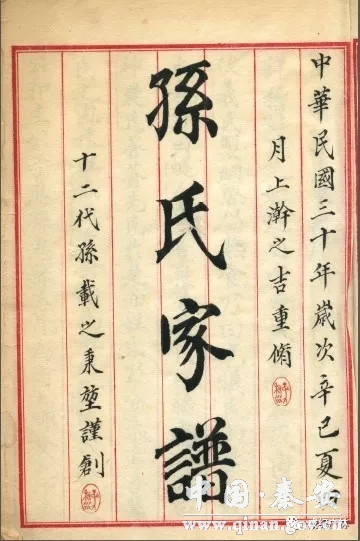 中華民國三十年歲次辛巳夏
月上澣之吉重脩
孫氏家譜
十二代孫載之秉堃謹創
中国·秦安
www.qinan.gov.cn